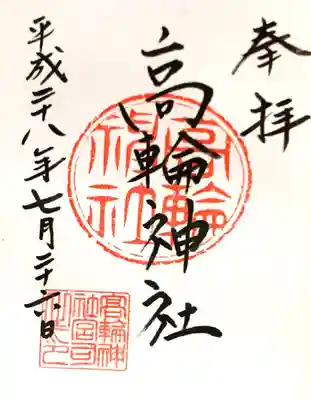 奉拝
高輪神社
平成二十八年七月二十六日
高輪神社
高輪神
社宮司
之印